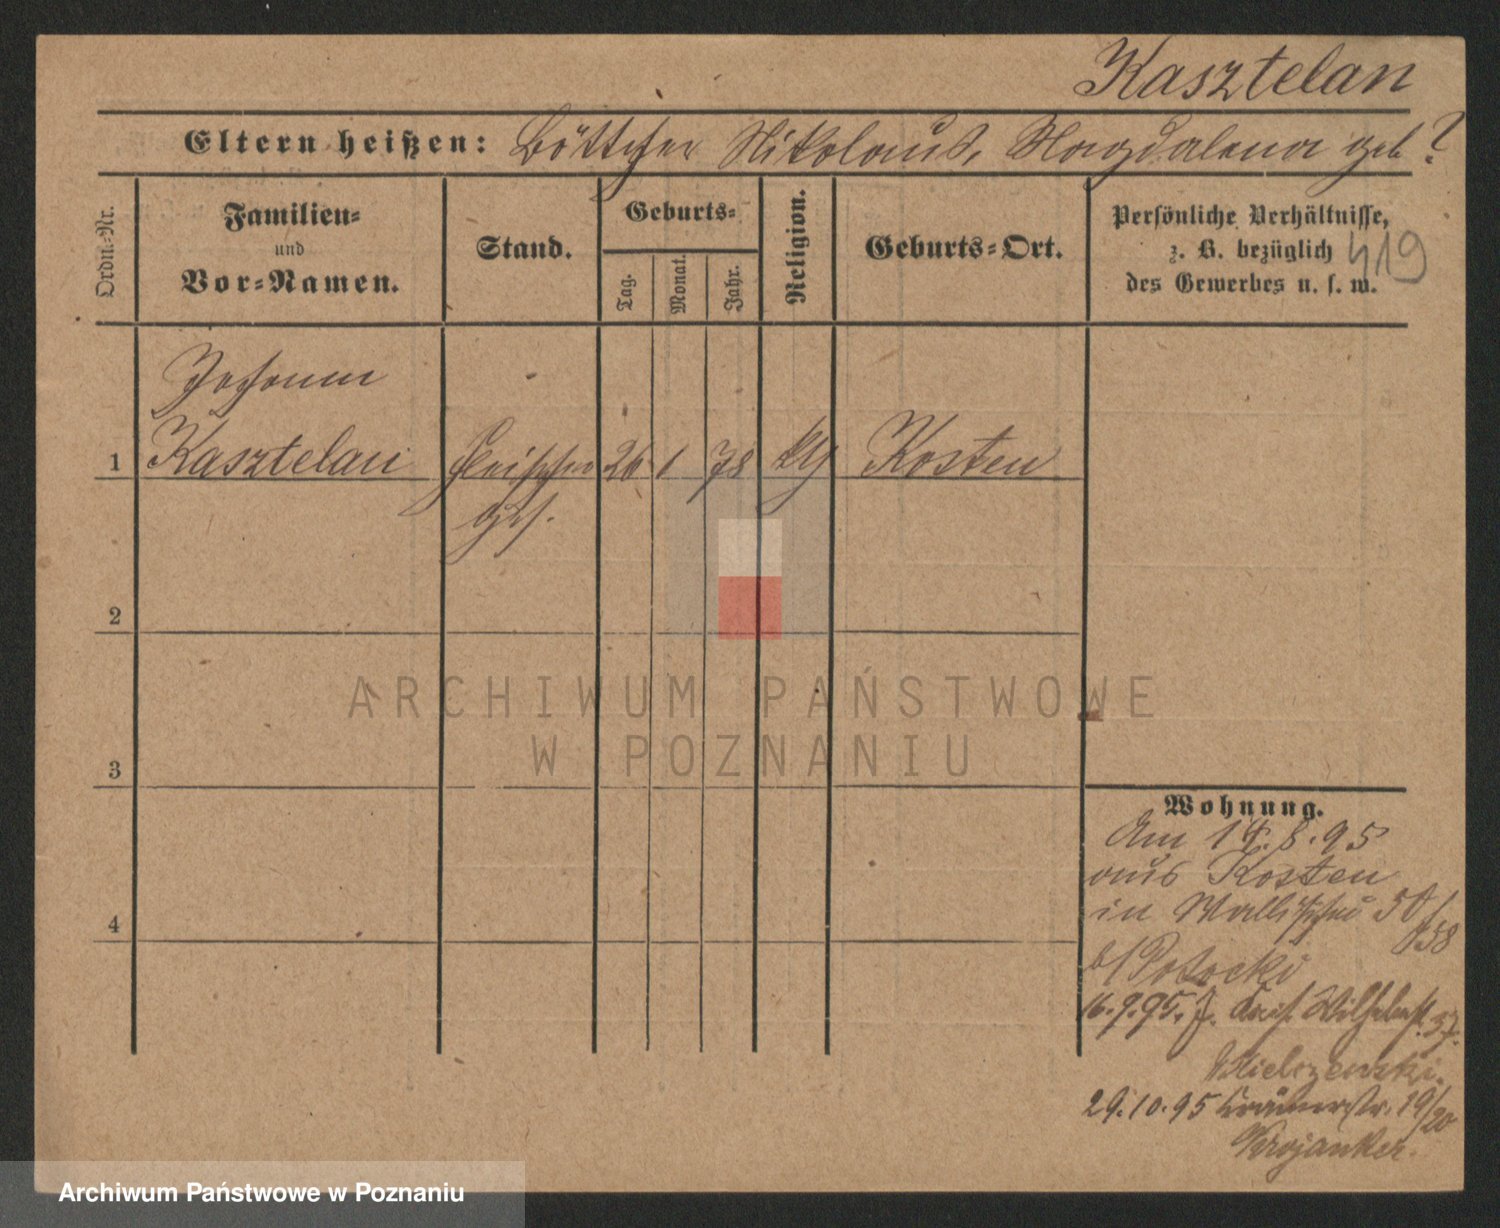 Kasztelan
Eltern heißen: Böttcher Nikolaus, Magdalena geb ?
Ordn.-Nr.
Familien-
und
Vor-Namen.
Stand.
Geburts-
Tag.
Monat.
Jahr.
Religion.
Geburts-Ort.
Persönliche Verhältnisse,
z. B. bezüglich
des Gewerbes u. s. w.
419
Johann
1 Kasztelan Fleischer 26 1 78 Kosten
ges.
2
3
4
Wohnung.
Am 14.8.95
aus Kosten
in Wallischei 50/
58
b/Potocki
16.9.95. Kais. Wilhelmst. 37.
29.10.95 Krämerstr. 19/20
Krojanker.
ARCHIWUM PAŃSTWOWE
W POZNANIU
Archiwum Państwowe w Poznaniu